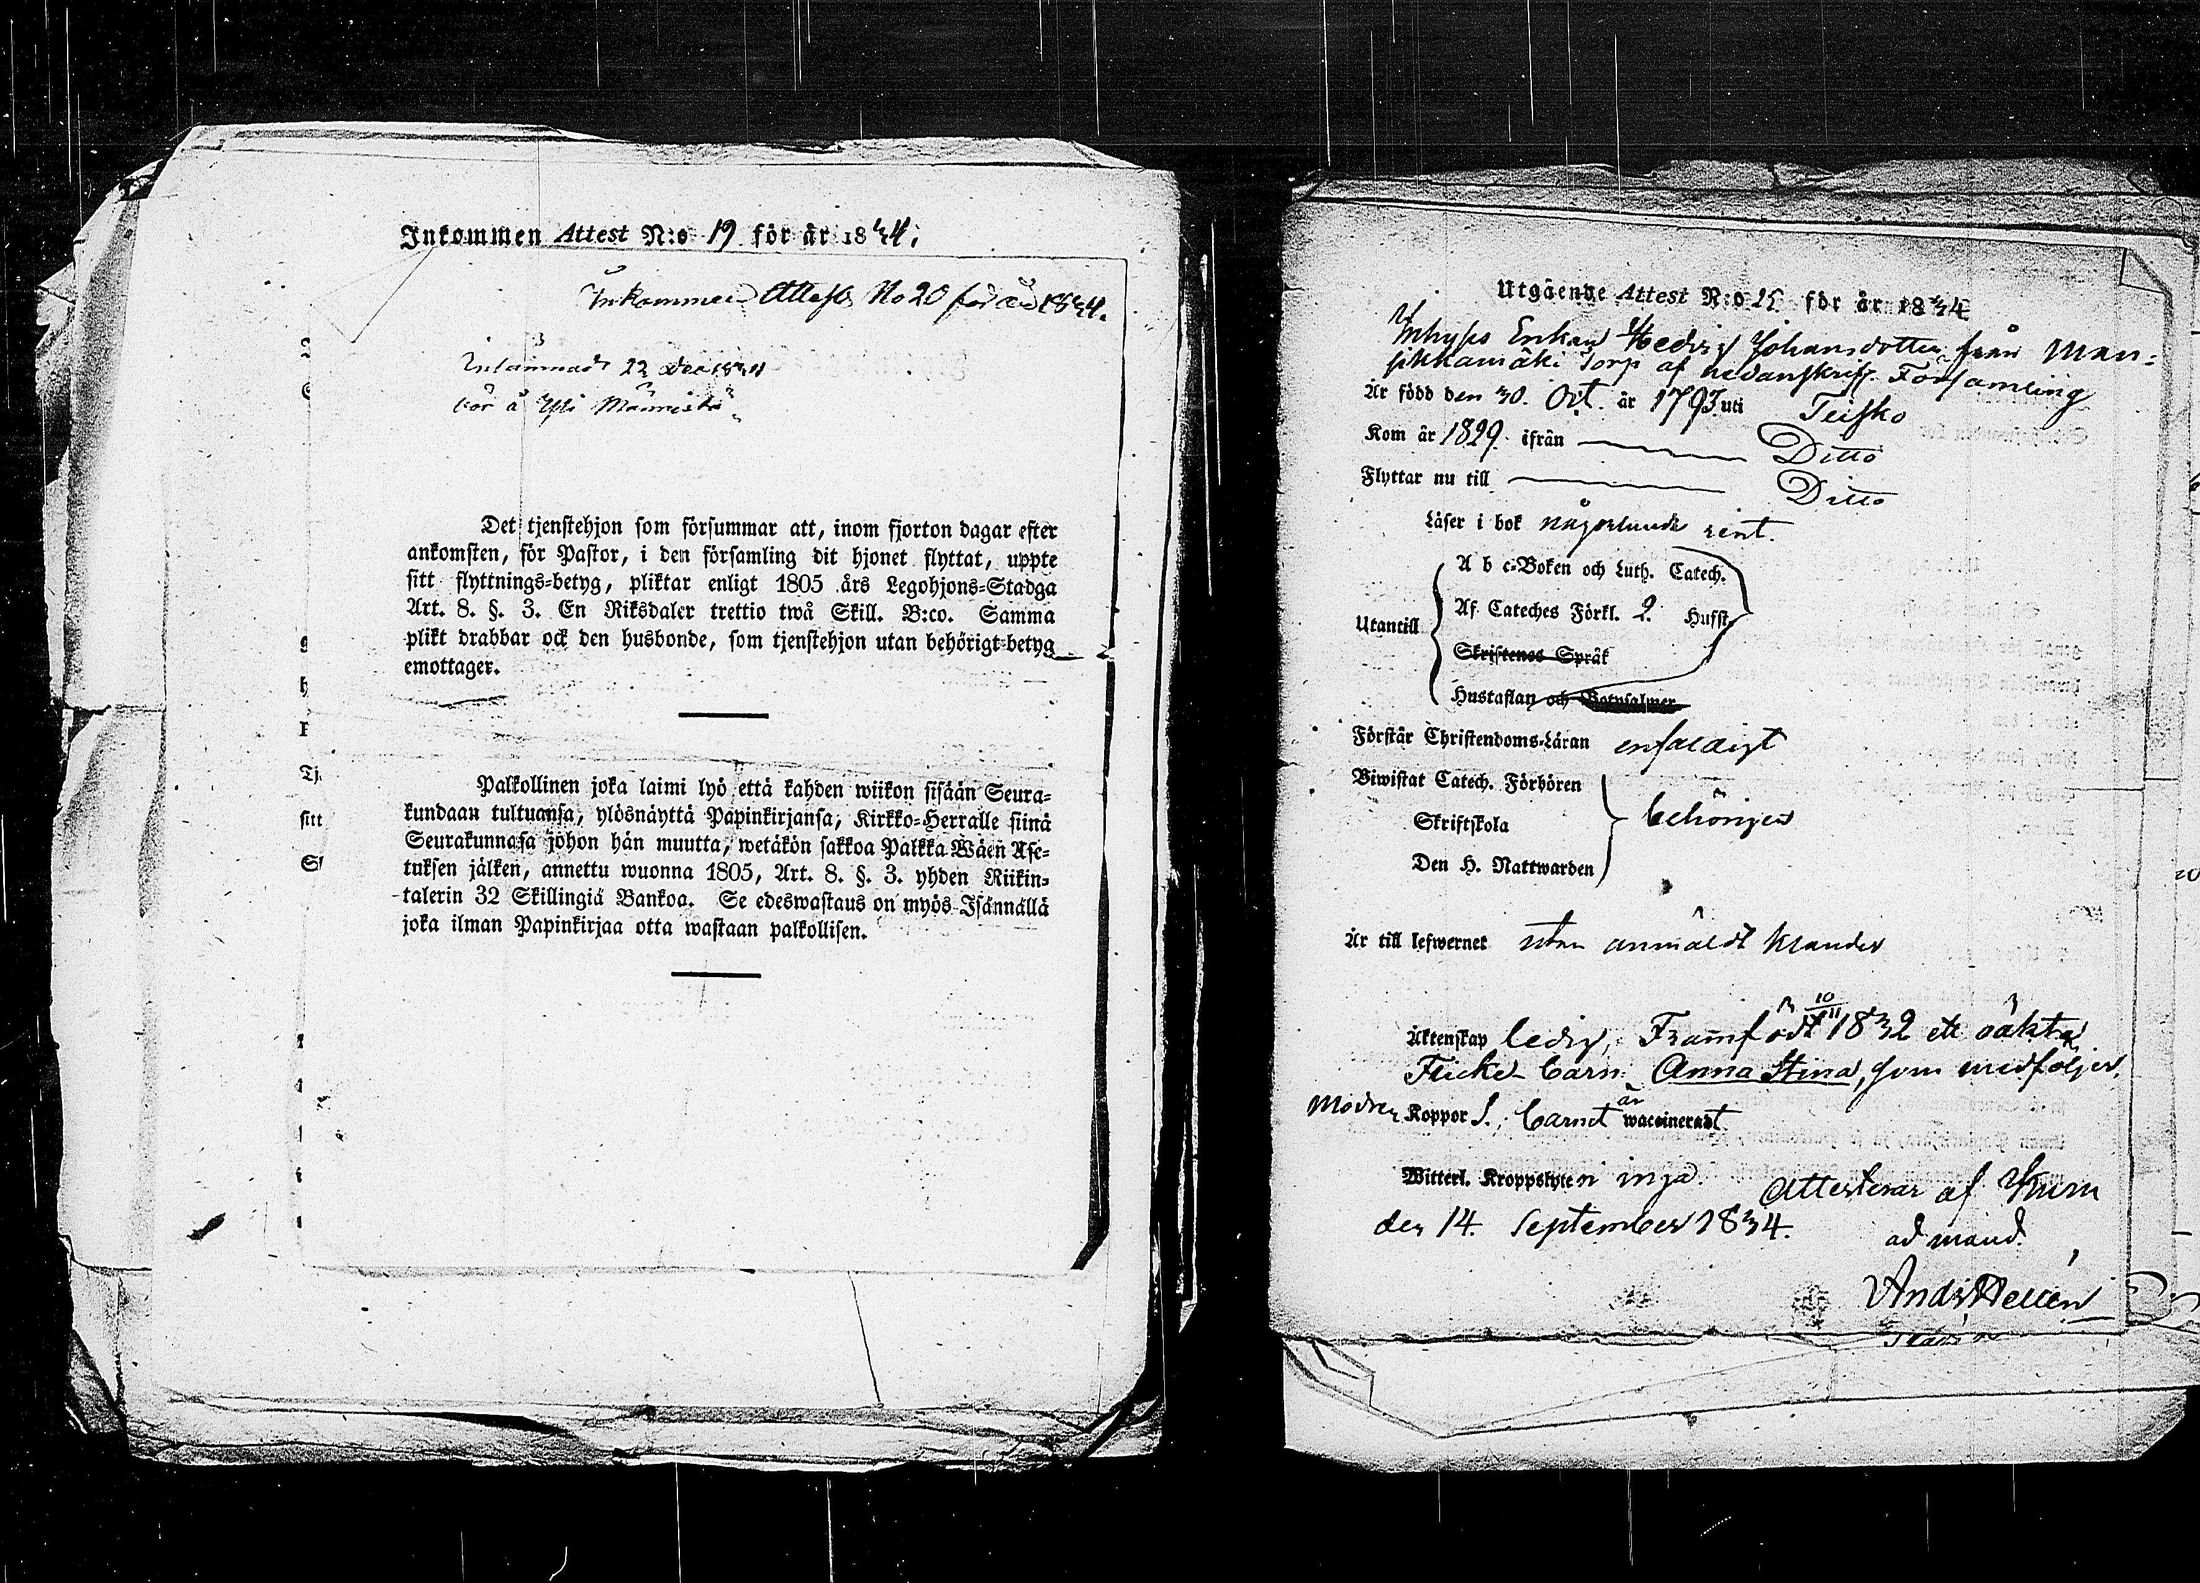 Inkommen Attest N:o 19 för år 1834.
Inkommen Attest No 20 för år 1834.
Inlämnad 22 Dec 1834
bor å Yli Männistö
Det tjenstehjon som försummar att, inom fjorton dagar efter
ankomsten, för Pastor, i den församling dit hjonet flyttat, uppte
sitt flyttnings-betyg, pliktar enligt 1805 års Legohjons-Stadga
Art. 8. §. 3. En Riksdaler trettio twå Skill. B:co. Samma
plikt drabbar ock den husbonde, som tjenstehjon utan behörigt betyg
emottager.
Palkollinen joka laimi lyö että kahden wiikon sisään Seura-
kundaan tultuansa, ylösnäyttä Papinkirjansa, Kirkko-Herralle siinä
Seurakunnasa johon hän muutta, wetäkön sakkoa Palkka Wäen Ase-
tuksen jälken, annettu wuonna 1805, Art. 8. §. 3. yhden Riikin-
talerin 32 Skillingiä Bankoa. Se edeswastaus on myös Isännällä
joka ilman Papinkirjaa otta wastaan palkollisen.
Utgående Attest N:o 25 för år 1834
Inhyses Enkan Hedvig Johansdotter från Man-
sikkamäki Torp af nedanskrefg. Församling
Är född den 30. Oct. år 1793 uti Teisko
Kom år 1829. ifrån Ditto
Flyttar nu till Ditto
Läser i bok någorlunda rent.
A b c-Boken och Luth. Catech.
Utantill Af Cateches Förkl. 2. Hufst
Skriftenes Språk
Hustaflan och Botpsalmer
Förstår Christendoms-Läran enfaldigt
Biwistat Catech. Förhören
Skriftskola behörigen
Den H. Nattwarden
Är till lefwernet utan anmäldt klander
Äktenskap ledig, Framfödt 10/11 1832 ett oäkta
Flicke barn Anna Stina, som medföljer.
Modren Koppor S., barnet är waccineradt
Witterl. Kroppslyten inga. Attesterar af Kuru
den 14. September 1834. ad mand.
And. Hellén